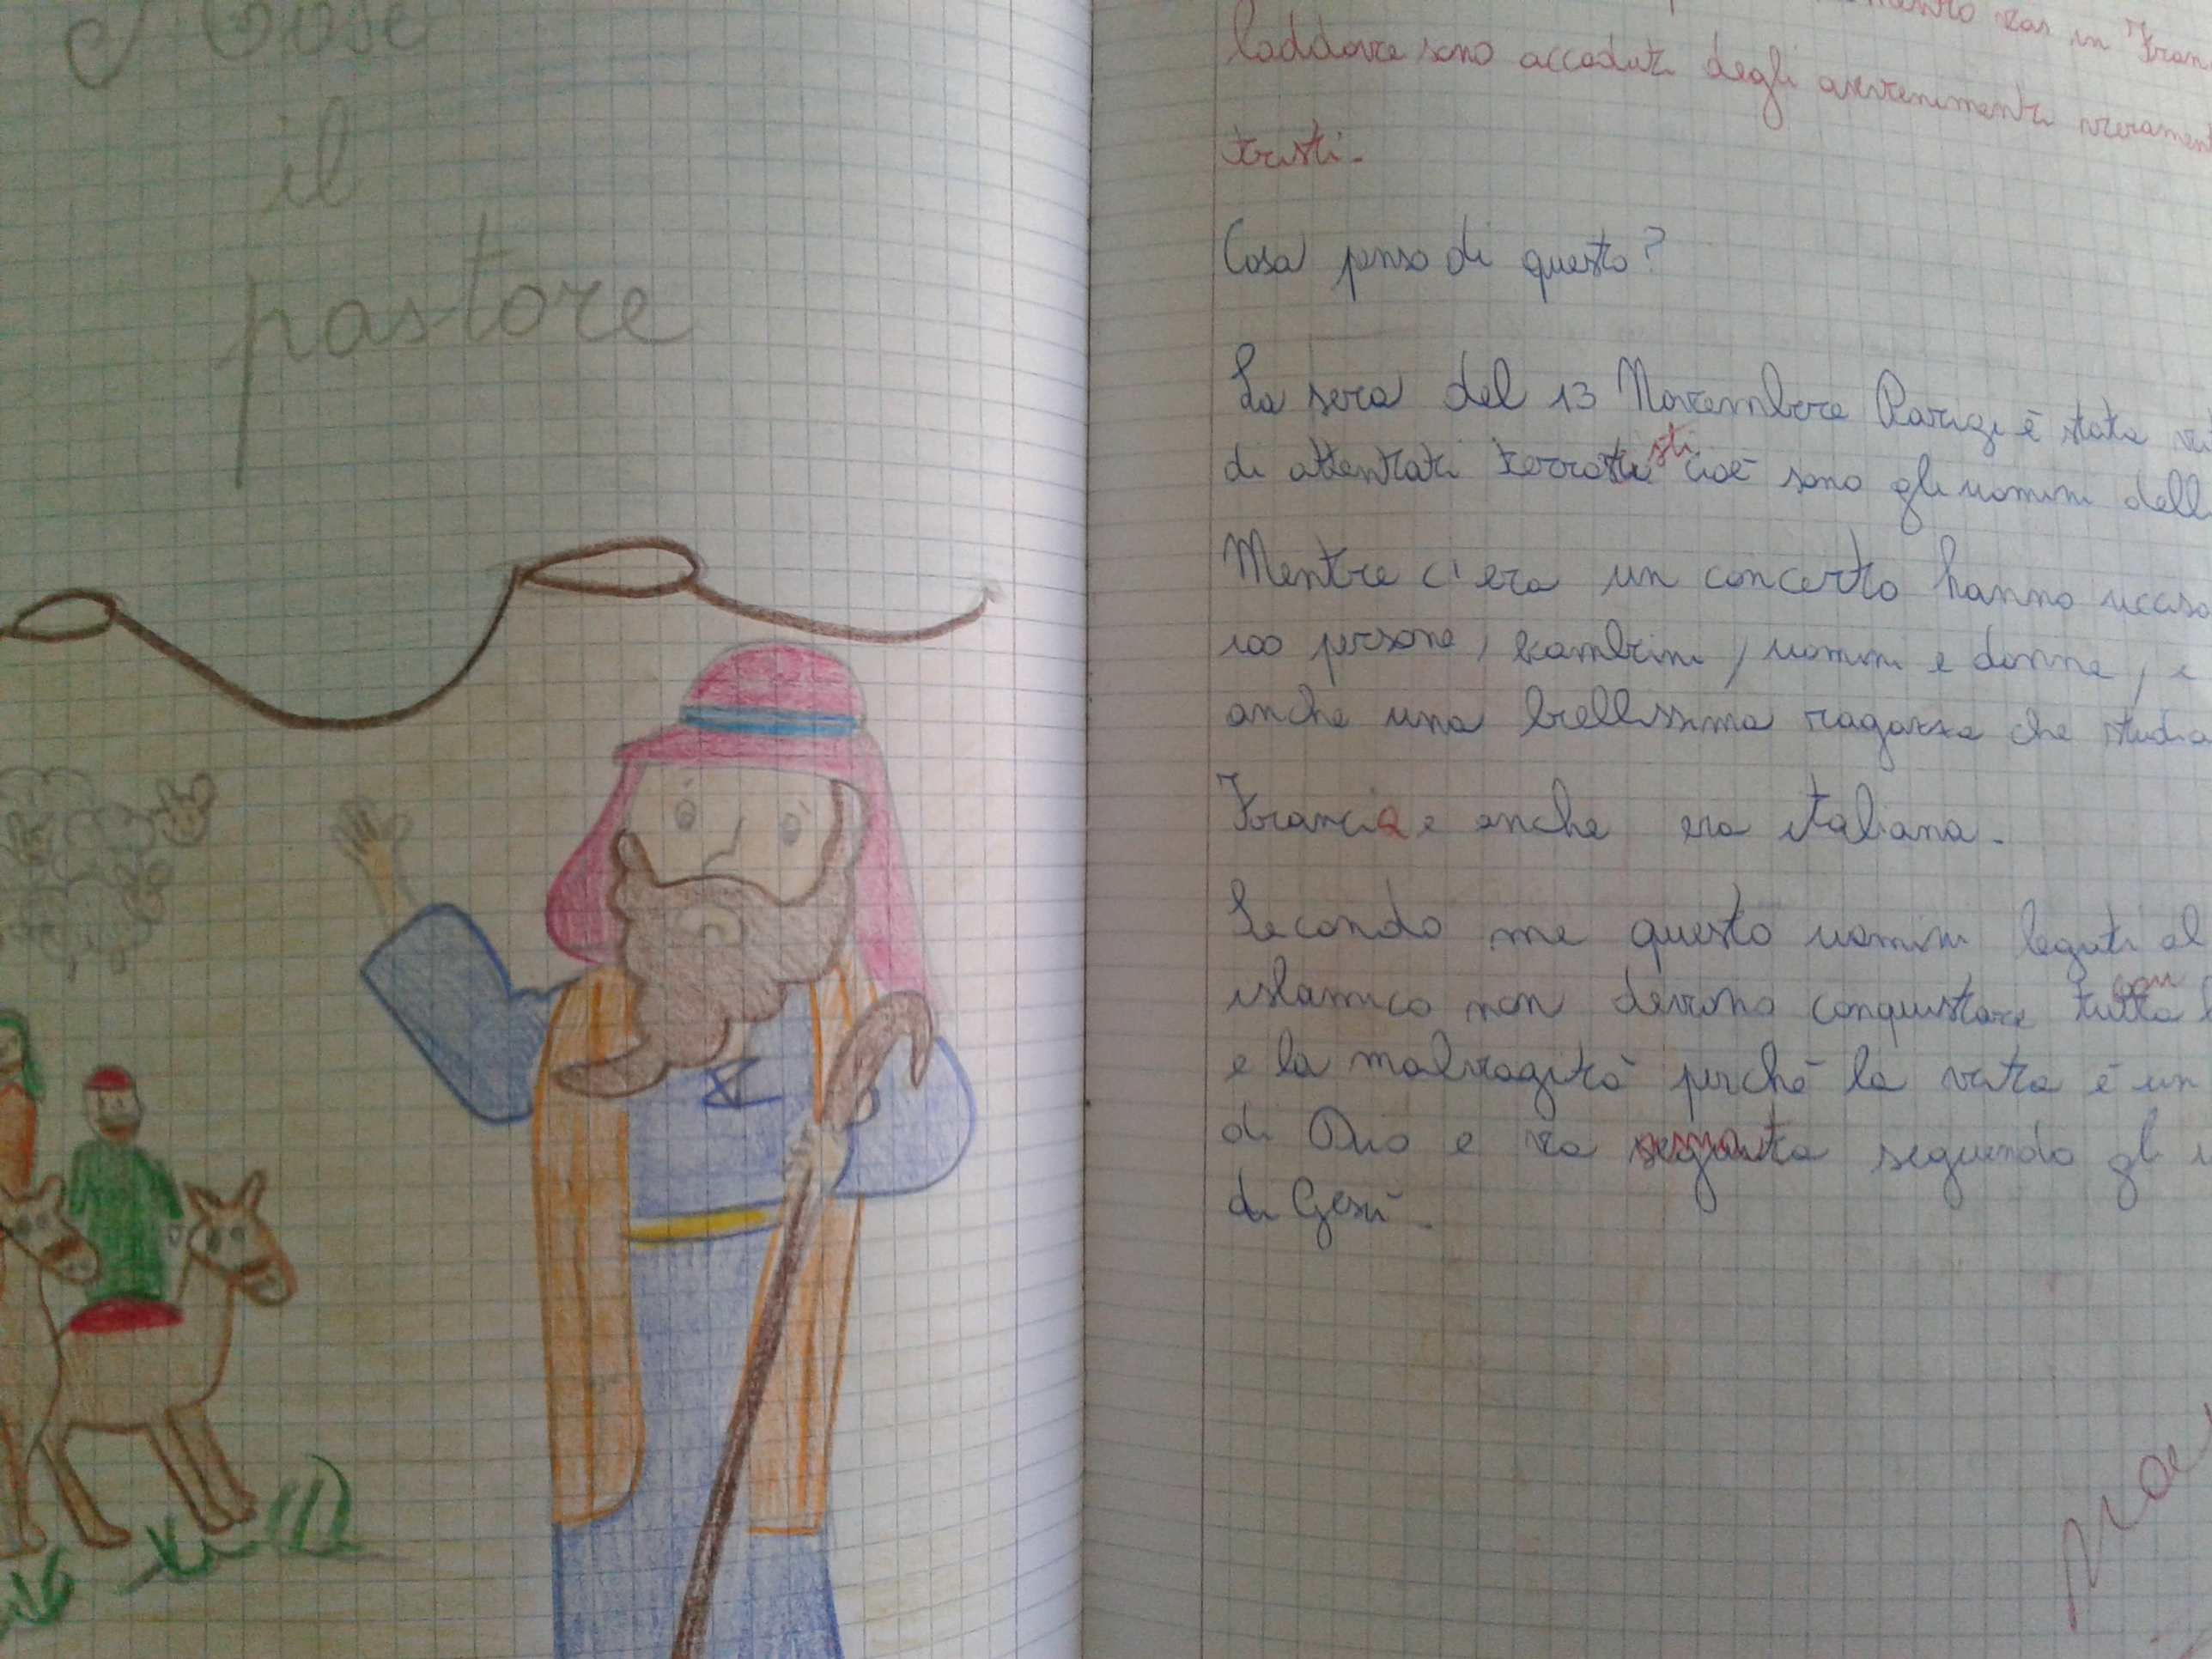 Mosè
il
pastore
in Fran
laddove sono accaduti degli avvenimenti verament
tristi.
Cosa penso di questo?
La sera del 13 Novembre Parigi è stata
di attentati terroristi cioè sono gli uomini dell
Mentre c'era un concerto hanno ucciso
100 persone, bambini, uomini e donne, e
anche una bellissima ragazza che studia
Francia e anche era italiana.
Secondo me questo uomini legati al
islamico non devono conquistare con
e la malvagità perché la vita è un
di Dio e va seguendo gl
di Gesù.